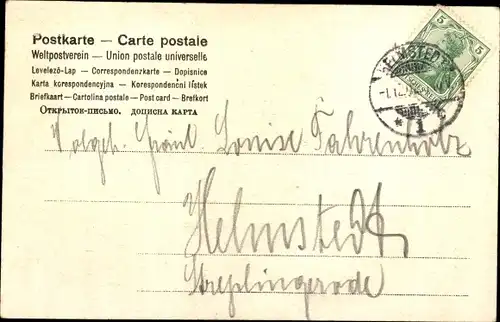 Postkarte — Carte postale
Weltpostverein — Union postale universelle
Levelező-Lap — Correspondenzkarte — Dopisnice
Karta korespondencyjna — Korespondenční lístek
Briefkaart — Cartolina postale — Post card — Brefkort
Открыток-письмо. дописна карта
5 5
HELMSTEDT
* 1
Louise Fahrenholz
Helmstedt